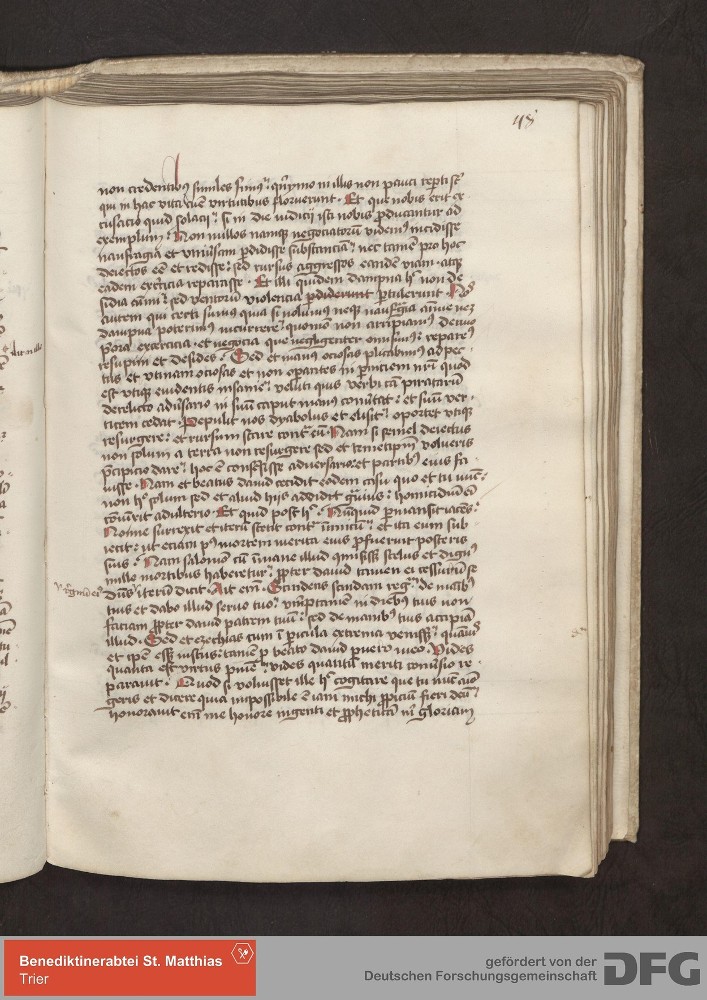 48
non credentibus similes simus qnymo in illis non pauci reperti st
qui in hac vita cum virtutibus floruerunt. Et que nobis erit ex
cusacio quid solacij si in die iudicij isti nobis producantur ad
exemplum Non nullos namque negociatorum videmus incidisse
naufragia et vniuersam perdidisse substanciam nec tamen pro hoc
deiectos esse et redisse sed rursus aggressos eandem viam atque
eadem exercicia reparasse. Et illi quidem dampna hec non de
sidia cum sed ventorum violencia perdiderunt pertulerunt Nos
autem qui certi sumus quia si nolumus neque naufragia
dampna poterimus incurrere quomodo non arripiamus denuo
exercicia et negocia que negligenter omisimus reparemus
resupini et desides. Sed et manus ociosas plicabimus ad pec
tus et vtinam ociosas et non operantes in perniciem nostram quod
est vtique euidentis insanie veluti quis verbi causa piratarum
derelicto aduersario in suum caput manus conuertat et suum ver
ticem cedat. Depulit nos dyabolus et elisit oportet vtique
resurgere et rursum stare contra eum. Nam si semel deiectus
non solum a terra non resurgere sed et temetipsum volueris
precipicio dare hoc est conserisse aduersario et partibus eius fa
uisse. Nam et beatus dauid cecidit eadem casu quo et tu nunc
non hoc solum sed et aliud hijs addidit homicidium
coniunxit adulterio. Et quid post hec. Nunquid permansit iacens
Nonne surrexit et iterum stetit contra inimicum et ita eum sub
iecit vt eciam post mortem merita eius profuerint posteris
suis. Nam salomon cum inmane illud amisisset scelus et dignus
mille mortibus haberetur propter dauid tamen ei cessurum se
dominus iterum dicit. Ait enim. Scindens scindam regnum de manibus
tuis et dabo illud seruo tuo verumptamen in diebus tuis non
faciam propter dauid patrem tuum sed de manibus tuis accipiam
illud. Sed et ezechias cum in pericula extrema venisset quamuis
et ipse esset iustus tamen pro beato dauid puero meo. Vides
quanta est virtus penitencie vides quantum meriti conuersio re
parauit. Quod si voluisset ille hec cogitare que tu nunc
geris et dicere quia inpossibile est iam michi propicium fieri deum
honorauit enim me honore ingenti et prophetica gloriam
Benediktinerabtei St. Matthias
Trier
gefördert von der
Deutschen Forschungsgemeinschaft
DFG